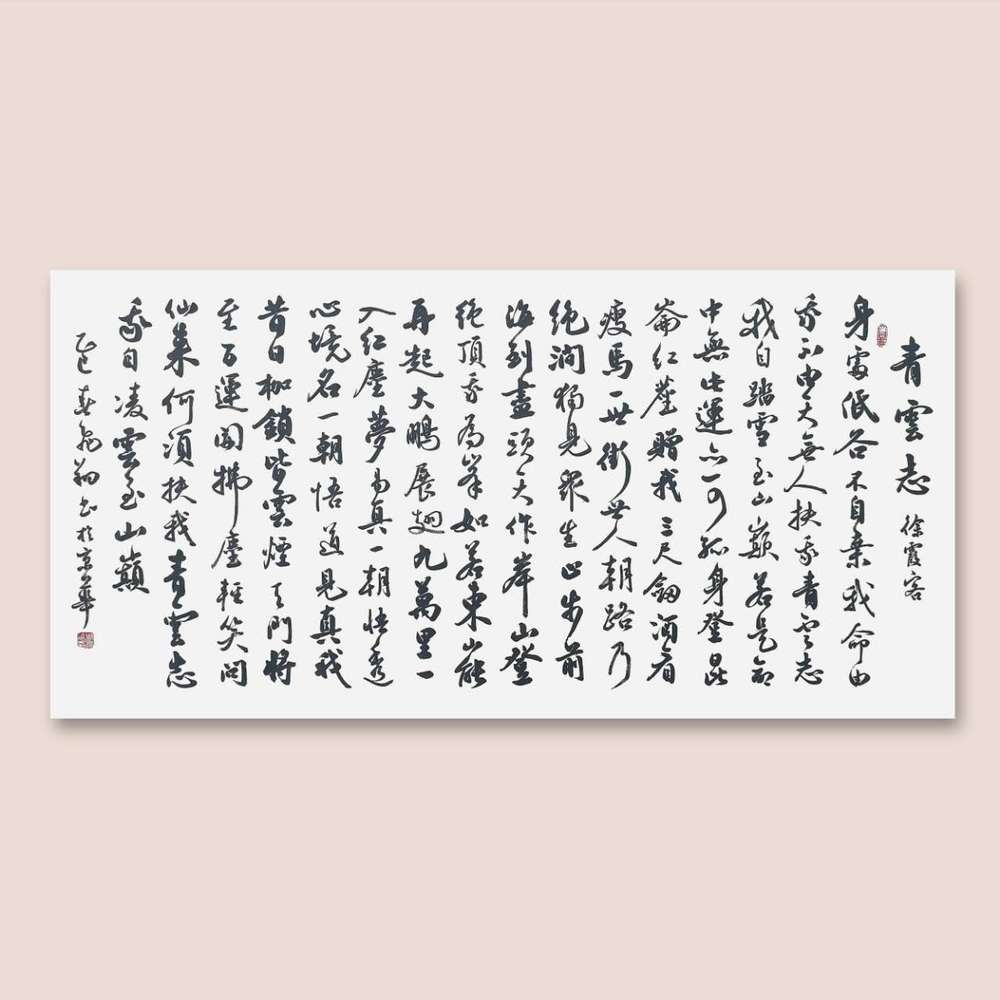 青雲志 徐霞客
身處低谷不自棄我命由
我不由天無人扶我青雲志
我自踏雪至山巔若是命
中無此運亦可孤身登昆
崙紅塵贈我三尺劍酒肩
瘦馬一世街世人朝路乃
絕澗獨見眾生止步前
海到盡頭天作岸山登
絕頂我為峯如若東山能
再起大鵬展翅九萬里一
入紅塵夢易真一朝悟透
心境名一朝悟道見真我
昔日枷鎖皆雲煙天門將
至百運開拂塵輕笑問
仙來何須扶我青雲志
我自凌雲至山巔
乙巳春翔書於京華